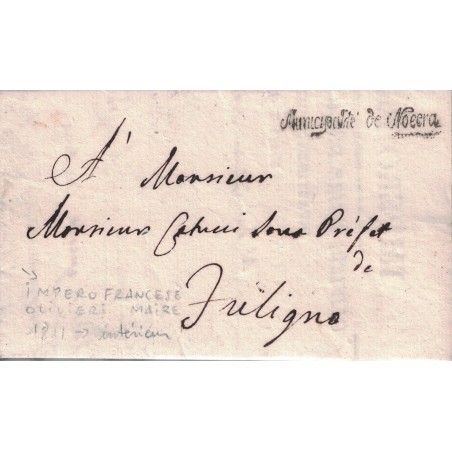 Municipalité de Nocera
A Monsieur
Monsieur Sous Préfet
de
Fuligno
IMPERO FRANCESE
OLIVIERI MAIRE
1811 → intérieur